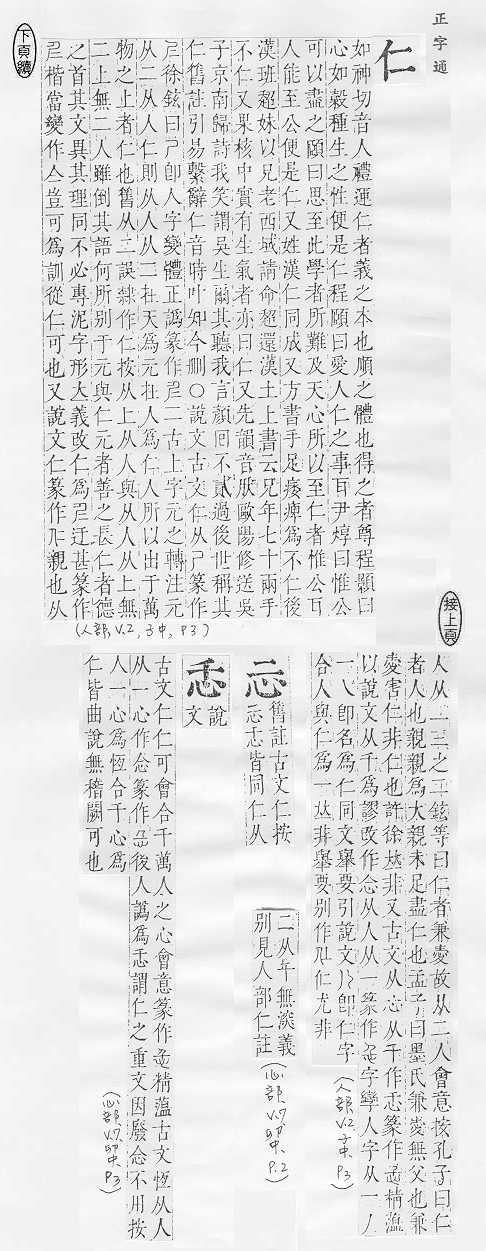 正字通
下頁續
仁
如神切音人禮運仁者義之本也順之體也得之者尊程顥曰
心如穀種生之性便是仁程頤曰愛人仁之事耳尹焞曰惟公
可以盡之頤曰思至此學者所難及天心所以至仁者惟公耳
人能至公便是仁又姓漢仁同成又方書手足痿痺為不仁後
漢班超妹以兄老西域請命超還漢土上書云兄年七十兩手
不仁又果核中實有生氣者亦曰仁又先韻音肰歐陽修送吳
子京南歸詩我笑謂吳生爾其聽我言顏回不貳過後世稱其
仁舊註引易繫辭仁音時叶如今刪○說文古文仁从尸篆作
𡰥徐鉉曰尸卽人字變體正譌篆作𡰥二古上字元之轉注元
从二从人仁則从人从二在天為元在人為仁人所以出于萬
物之上者仁也舊从二誤隸作仁按从上从人與从人从上無
二上無二人雖倒其語何所別于元與仁元者善之長仁者德
之首其文異其理同不必專泥字形大義改仁為𡰥迂甚篆作
𡰥楷當變作仚豈可為訓從仁可也又說文仁篆作親也从
(人部, V.2, 子中, P3)
接上頁
人从二三之二鉉等曰仁者兼愛故从二人會意按孔子曰仁
者人也親親為大親未足盡仁也孟子曰墨氏兼愛無父也兼
愛害仁非仁也許徐𠀤非又古文从心从千作忎篆作精薀
以說文从千為謬改作从人从一篆作字孿人字从一人
一卽名為仁同文舉要引說文卽仁字
合人與仁為一𠀤非舉要別作仁尤非
(人部 V.2 子中 P3)
忈
舊註古文仁按
忈忎皆同仁从
二从千無深義
別見人部仁註
(心部 V.7 卯中 P.2)
忎
說文
古文仁仁可會合千萬人之心會意篆作精薀古文恆从人
从一心作念篆作後人譌為忎謂仁之重文因廢念不用按
人一心為恆合千心為
仁皆曲說無稽闕可也
(心部 V.7 卯中 P3)